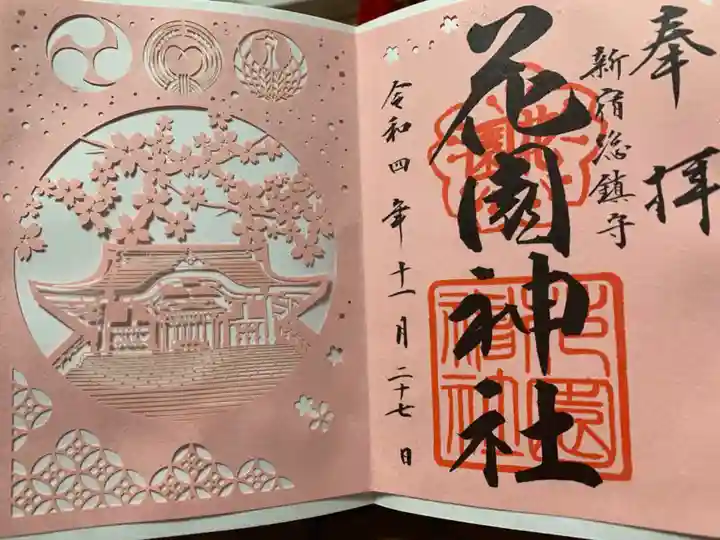 奉拝
新宿総鎮守
花園神社
令和四年十一月二十七日
花園神社